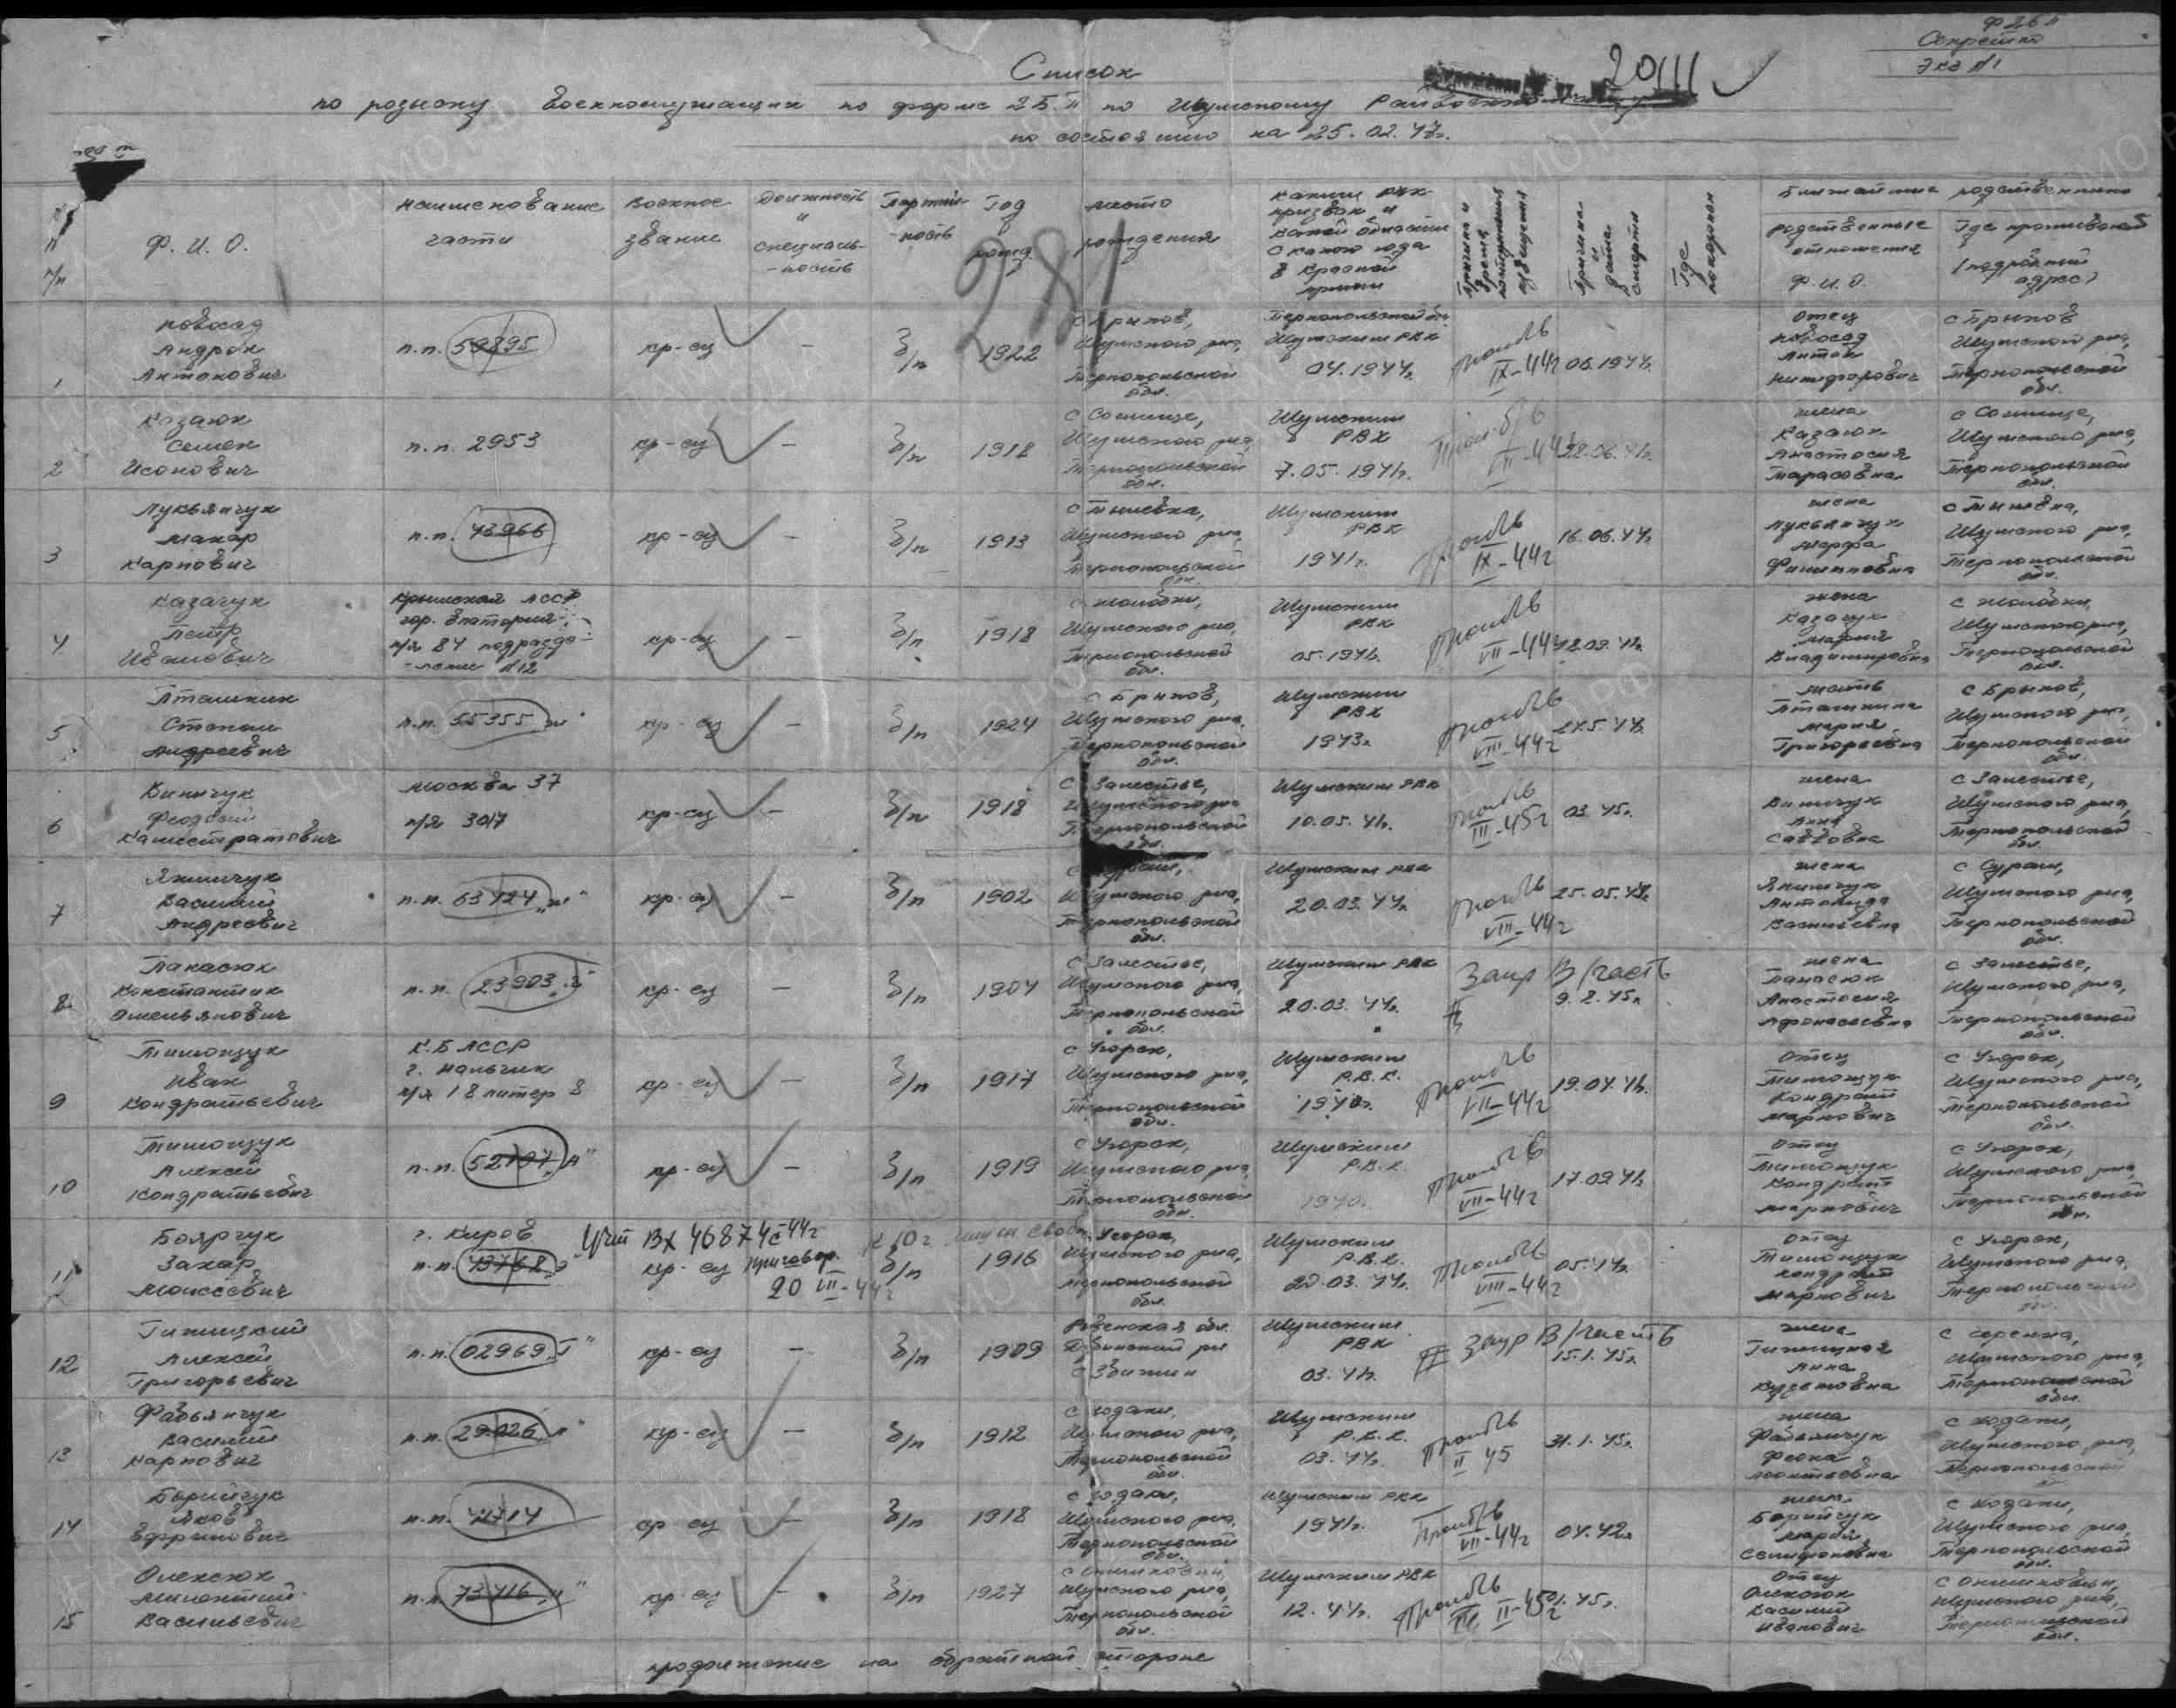 Ф 2б н
Секретно
Экз №1
Список
20/III
по розыску военнослужащих по форме 2Б. н по Шумскому Райвоенкомату
по состоянию на 25.02.47г.
№ п/п
Ф. И. О.
наименование части
военное звание
Должность и специаль-ность
Партий-ность
Год рожд
место рождения
каким РВК призван и какой области с какого года в Красной армии
Причина и дата смерти
Где похоронен
Ближайшие родственники
родственные отношения Ф.И.О.
Где проживает (подробный адрес)
281
1
новосад Андрон Антонович
п.п. 59895
кр-ец
–
б/п
1922
с Брыков, Шумского р-на, Тернопольской обл.
Тернопольской обл. Шумским РВК 04.1944г.
Проп б/в IX-44г
06.1944г.
отец новосад Антон Никифорович
с Брыков Шумского р-на, Тернопольской обл.
2
Казаюк Семен Исакович
п.п. 2953
кр-ец
–
б/п
1918
с Сошище, Шумского р-на, Тернопольской обл.
Шумским РВК 7.05.1941г.
Проп. б/в VII-44г
28.06.41г.
жена Казаюк Анастасия Тарасовна
с Сошище, Шумского р-на, Тернопольской обл.
3
Лукьянчук макар Карпович
п.п. 43966
кр-ец
–
б/п
1913
с Тылявка, Шумского р-на, Тернопольской обл.
Шумским РВК 1941г.
Проп б/в IX-44г
16.06.44г.
жена Лукьянчук марфа Филипповна
с Тылявка, Шумского р-на, Тернопольской обл.
4
Казачук Петр Иванович
Крымская АССР гор. Евпатория п/я 84 подразде-ление №12
кр-ец
–
б/п
1918
с жолобки, Шумского р-на, Тернопольской обл.
Шумским РВК 05.1941г.
Проп б/в VII-44г
18.09.41г.
жена Казачук мария Владимировна
с жолобки, Шумского р-на, Тернопольской обл.
5
Пташкин Степан Андреевич
п.п. 55355 „ж"
кр-ец
–
б/п
1924
с Брыков, Шумского р-на, Тернопольской обл.
Шумским РВК 1943г.
Проп б/в VIII-44г
мать Пташкина мария Григорьевна
с Брыков, Шумского р-на, Тернопольской обл.
6
Виничук Феодосий Калистратович
москва 37 п/я 3017
кр-ец
–
б/п
1918
с Залесье, Шумского р-на Тернопольской обл.
Шумским РВК 10.05.41г.
Проп б/в III-45г
03.45г.
жена Виничук Анна Саввовна
с Залесье, Шумского р-на, Тернопольской обл.
7
Якимчук Василий Андреевич
п.п. 63424 „ж"
кр-ец
–
б/п
1902
с Сураж, Шумского р-на, Тернопольской обл.
Шумским РВК 20.03.44г.
Проп б/в VIII-44г
25.05.44г.
жена Якимчук Антонида Васильевна
с Сураж, Шумского р-на, Тернопольской обл.
8
Панасюк Константин Омельянович
п.п. 23903
кр-ец
–
б/п
1904
с Залесье, Шумского р-на, Тернопольской обл.
Шумским РВК 20.03.44г.
Запр В/часть
9.2.45г.
жена Панасюк Анастасия Афанасьевна
с Залесье, Шумского р-на, Тернопольской обл.
9
Тимощук Иван Кондратьевич
К.Б АССР г. нальчик п/я 18 литер 8
кр-ец
–
б/п
1917
с Угорск, Шумского р-на, Тернопольской обл.
Шумским Р.В.К. 1940г.
Проп б/в VII-44г
19.04.41г.
отец Тимощук Кондрат маркович
с Угорск, Шумского р-на, Тернопольской обл.
10
Тимощук Алексей Кондратьевич
п.п. 52797 „А"
кр-ец
–
б/п
1919
с Угорск, Шумского р-на, Тернопольской обл.
Шумским Р.В.К. 1940г.
Проп б/в VII-44г
17.09.41г.
отец Тимощук Кондрат маркович
с Угорск, Шумского р-на, Тернопольской обл.
11
Боярчук Захар моисеевич
г. Киров п.п. 13768
Вх 46874с-44г
к 10 г лиш свобод
приговор. 20 VII-44г
кр-ец
б/п
1916
с Угорск, Шумского р-на, Тернопольской обл.
Шумским Р.В.К. 20.03.44г.
Проп б/в VIII-44г
05.44г.
отец Тимощук кондрат маркович
с Угорск, Шумского р-на, Тернопольской обл.
12
Гижицкий Алексей Григорьевич
п.п. 02969 „Г"
кр-ец
–
б/п
1909
Ровенская обл. Дубинский р-н
Шумским РВК 03.44г.
Запр В/часть
15.1.45г.
жена Гижицкая Анна Кузьмовна
Шумского р-на, Тернопольской обл.
13
Фабьянчук Василий Карпович
п.п. 29026 „п"
кр-ец
–
б/п
1912
с кодаки, Шумского р-на, Тернопольской обл.
Шумским Р.В.К. 03.44г.
Проп б/в II 45
31.1.45г.
жена Фабьянчук Феона Леонтьевна
с кодаки, Шумского р-на, Тернопольской обл.
14
Борийчук Яков Ефремович
п.п. 41714
кр-ец
–
б/п
1918
с кодаки, Шумского р-на, Тернопольской обл.
Шумским РВК 1941г.
Проп б/в VII-44г
04.42г.
жена Борийчук мария Семионовна
с кодаки, Шумского р-на, Тернопольской обл.
15
Олексюк милентий Васильевич
п.п. 73716 „ч"
кр-ец
–
б/п
1927
с Онишковци, Шумского р-на, Тернопольской обл.
Шумским РВК 12.44г.
Проп б/в II-45г
01.45г.
отец Олексюк Василий Иванович
с Онишковци, Шумского р-на, Тернопольской обл.
продолжение на обратной стороне